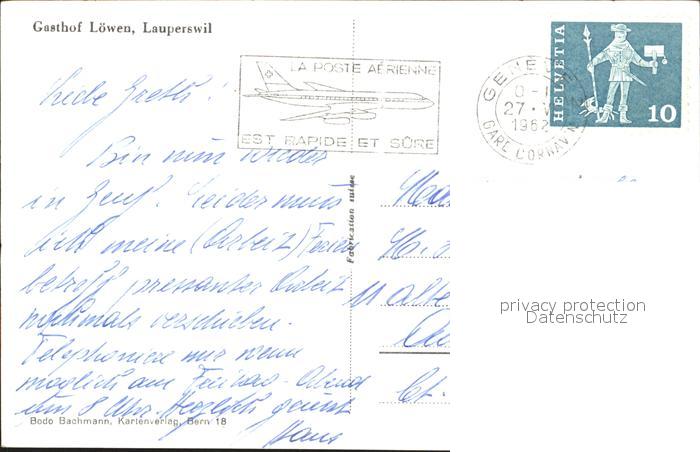 Gasthof Löwen, Lauperswil
LA POSTE AÉRIENNE
EST RAPIDE ET SÛRE
GENÈVE
27.
1962
GARE CORNAVIN
HELVETIA
10
Liebe Gretli!
Bin nun wieder
in Genf. Leider muss
ich meine (Arbeit) Ferien
betreff pressanter Arbeit
nochmals verschieben.
Telephoniere mir wenn
möglich am Freitag-Abend
um 8 Uhr. Herzlich grüsst
Hans
Fabrication suisse
privacy protection
Datenschutz
Bodo Bachmann, Kartenverlag, Bern 18